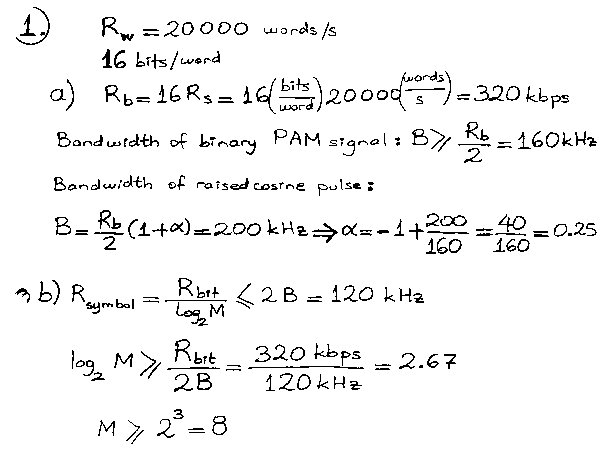 1. R_w = 20000 words/s
16 bits/word
a) R_b = 16 R_s = 16 (bits/word) 20000 (words/s) = 320 kbps
Bandwidth of binary PAM signal: B ⩾ R_b/2 = 160 kHz
Bandwidth of raised cosine pulse:
B = R_b/2 (1+α) = 200 kHz ⇒ α = -1 + 200/160 = 40/160 = 0.25
b) R_symbol = R_bit/log_2 M ⩽ 2B = 120 kHz
log_2 M ⩾ R_bit/2B = 320 kbps/120 kHz = 2.67
M ⩾ 2^3 = 8